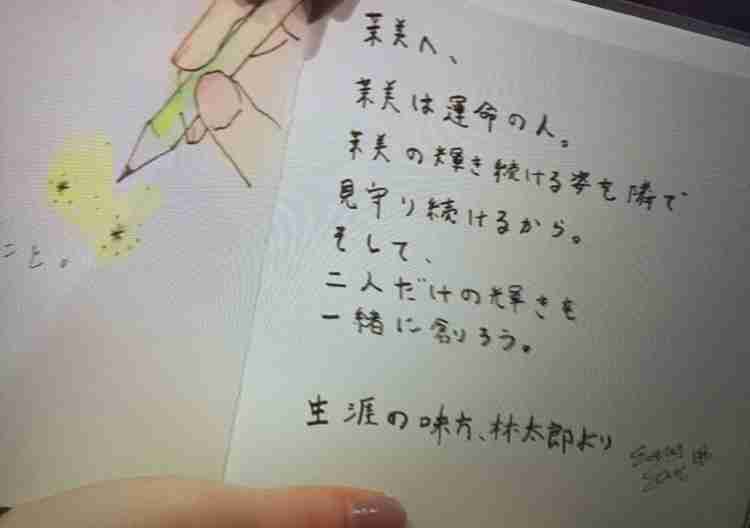 茉美へ、
茉美は運命の人。
茉美の輝き続ける姿を隣で
見守り続けるから。
そして、
二人だけの輝きを
一緒に創ろう。
生涯の味方、林太郎より
こと。